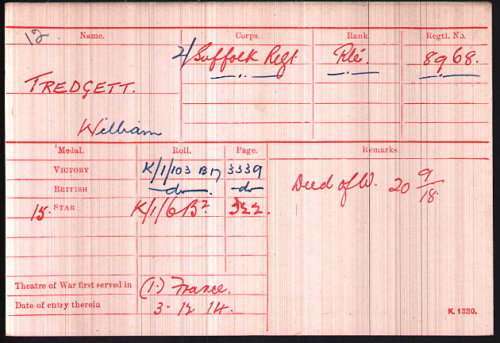 12 Name. Corps. Rank. Regtl. No.
2/ Suffolk Regt. Pte. 8968.
TREDGETT.
William
Medal. Roll. Page. Remarks
VICTORY K/1/103 B17 3339
BRITISH do do Died of W. 20 9/18.
15 STAR K/1/6 B2 322.
Theatre of War first served in (1) France.
Date of entry therein 3-12-14.
K. 1380.